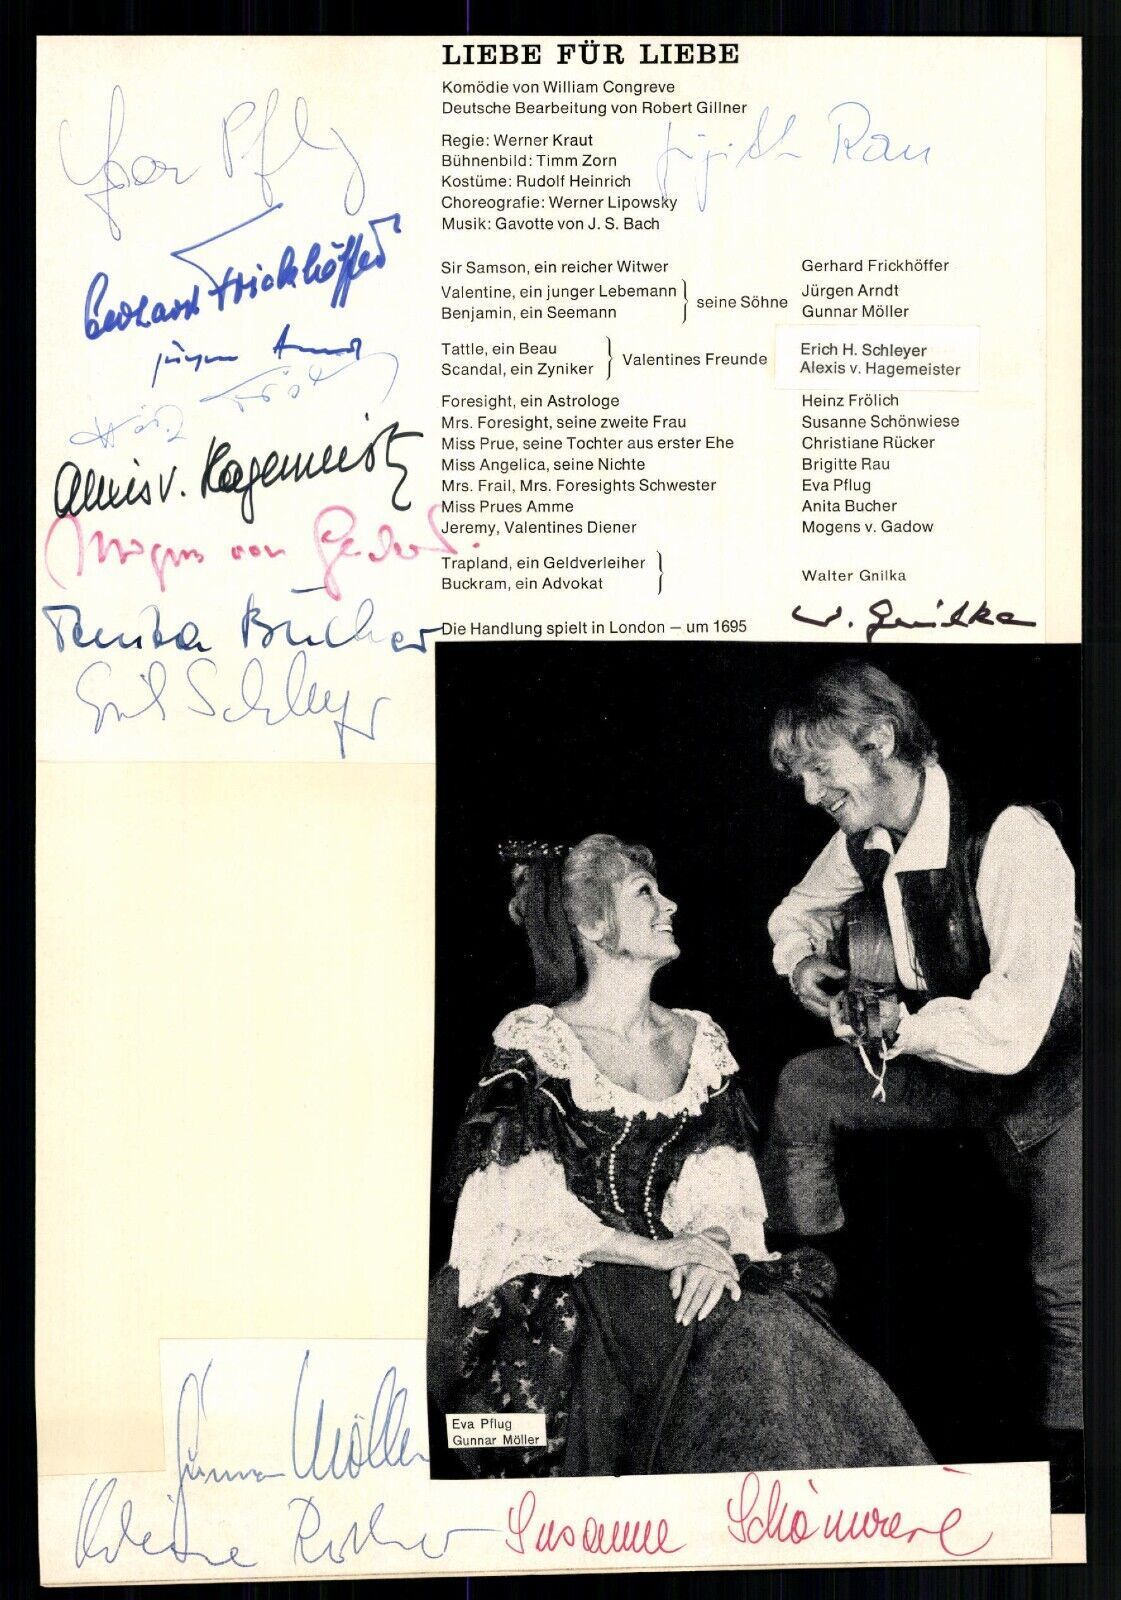 LIEBE FÜR LIEBE
Komödie von William Congreve
Deutsche Bearbeitung von Robert Gillner
Regie: Werner Kraut
Bühnenbild: Timm Zorn
Kostüme: Rudolf Heinrich
Choreografie: Werner Lipowsky
Musik: Gavotte von J. S. Bach
Brigitte Rau
Eva Pflug
Gerhard Frickhöffer
Jürgen Arndt
Heinz Frölich
Alexis v. Hagemeister
Mogens von Gadow.
Anita Bucher
Erich Schleyer
Sir Samson, ein reicher Witwer Gerhard Frickhöffer
Valentine, ein junger Lebemann } seine Söhne Jürgen Arndt
Benjamin, ein Seemann Gunnar Möller
Tattle, ein Beau } Valentines Freunde Erich H. Schleyer
Scandal, ein Zyniker Alexis v. Hagemeister
Foresight, ein Astrologe Heinz Frölich
Mrs. Foresight, seine zweite Frau Susanne Schönwiese
Miss Prue, seine Tochter aus erster Ehe Christiane Rücker
Miss Angelica, seine Nichte Brigitte Rau
Mrs. Frail, Mrs. Foresights Schwester Eva Pflug
Miss Prues Amme Anita Bucher
Jeremy, Valentines Diener Mogens v. Gadow
Trapland, ein Geldverleiher } Walter Gnilka
Buckram, ein Advokat
Die Handlung spielt in London – um 1695
W. Gnilka
Eva Pflug
Gunnar Möller
Gunnar Möller
Christiane Rücker Susanne Schönwiese